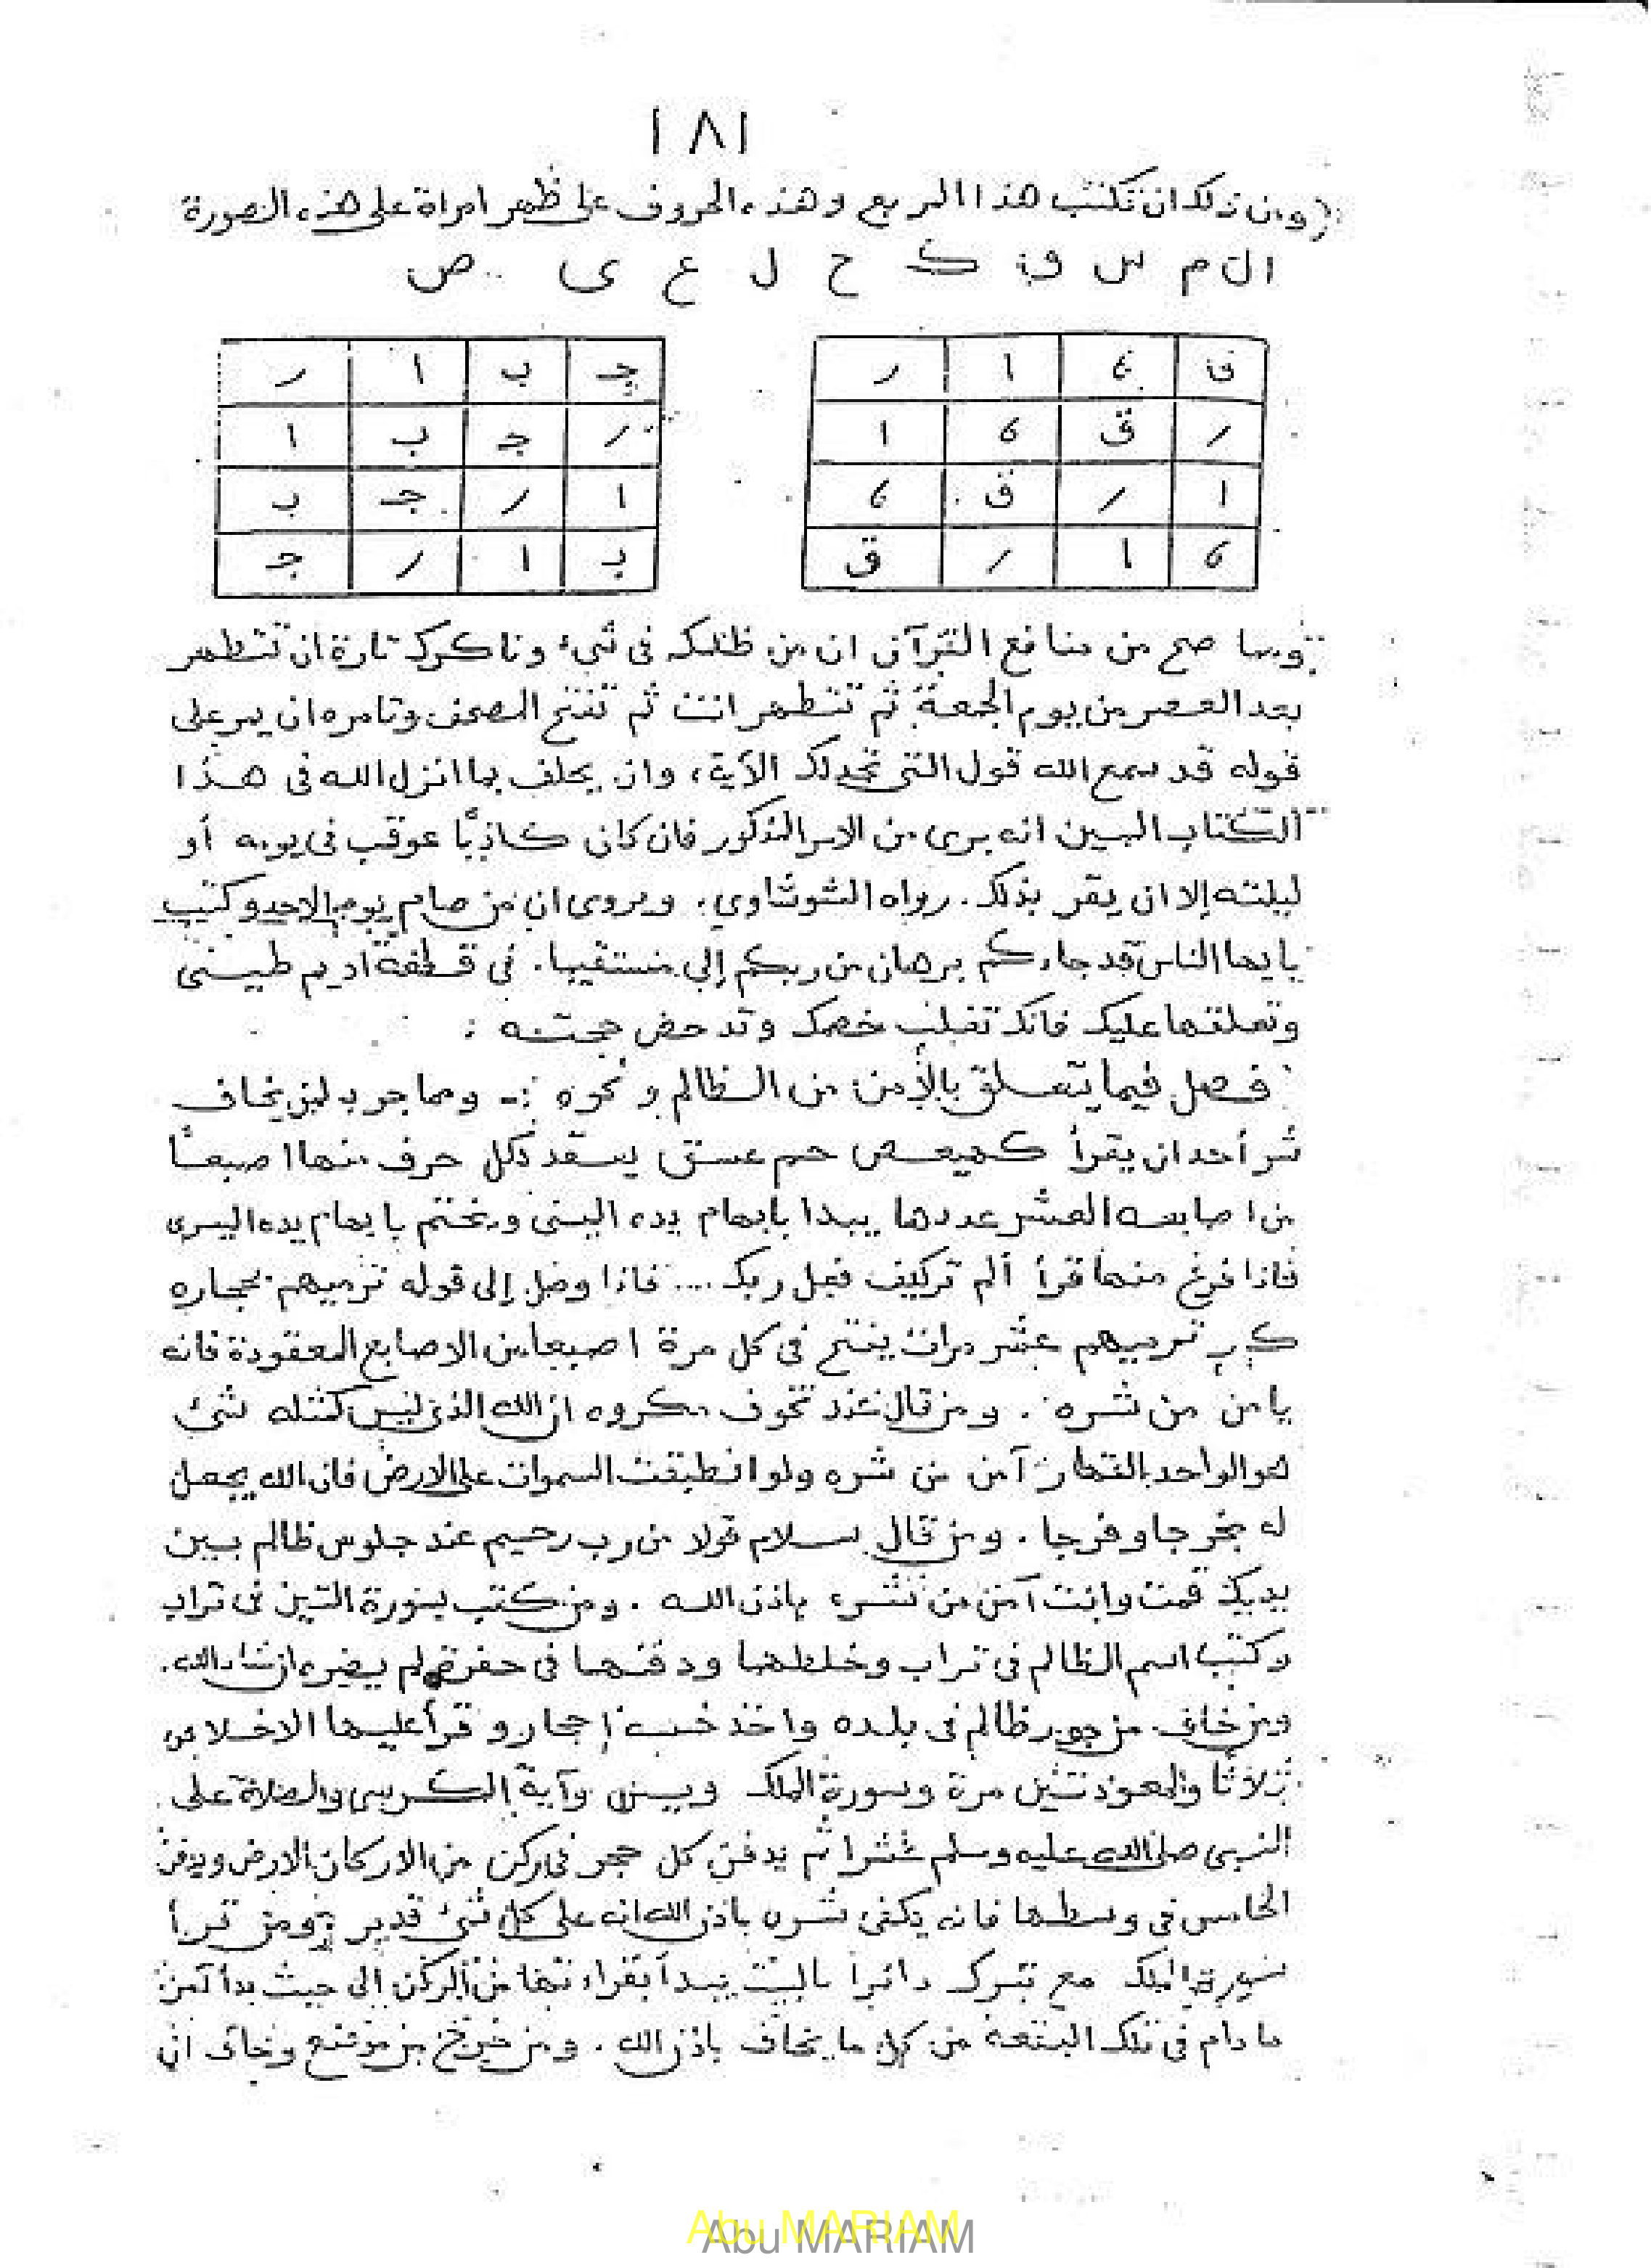 ١٨١
ومن ذلك ان تكتب هذا المربع وهذه الحروف على ظهر امراة على هذه الصورة
ال م س ق ك ح ل ع ى ص
ق ا ر
ر ق ا
ا ر ق
ا ر ق
جـ ب ا ر
ر جـ ب ا
ا ر جـ ب
ب ا ر جـ
ومما صح من منافع القرآن ان من ظلمك فى شىء وناكرك تارة ان تتطهر
بعد العصر من يوم الجمعة ثم تتطهر انت ثم تفتح المصحف وتامره ان يمر على
قوله قد سمع الله قول التى تجدلك الآية، وان يحلف بما انزل الله فى هذا
الكتاب المبين انه برى من الامر المذكور فان كان كاذبًا عوقب فى يومه أو
ليلته إلا ان يقر بذلك. رواه الشوشاوي، ويروى ان من صام يوم الاحد وكتب
يايها الناس قد جاءكم برهان من ربكم إلى مستقيما. فى قطعة اديم طيبى
وتعلقها عليك فانك تغلب خصمك وتدحض حجته :
فصل فيما يتعلق بالأمن من الظالم ونحوه :ـ ومما جرب لمن يخاف
شر أحد ان يقرأ كهيعص حم عسق يعقد لكل حرف منها اصبعًا
من اصابعه العشر عددها يبدا بابهام يده اليمنى ويختم بابهام يده اليسرى
فاذا فرغ منها قرأ ألم تر كيف فعل ربك .... فاذا وصل إلى قوله ترميهم بحجاره
كرر ترميهم عشر مرات يفتح فى كل مرة اصبعا من الاصابع المعقودة فانه
يامن من شره . ومن قال عند تخوف مكروه ان الله الذى ليس كمثله شئ
هو الواحد القهار آمن من شره ولو انطبقت السموات على الارض فان الله يجعل
له مخرجا وفرجا . ومن قال سلام قولا من رب رحيم عند جلوس ظالم بين
يديك قمت وانت آمن من شره باذن الله . ومن كتب سورة التين فى تراب
وكتب اسم الظالم فى تراب وخلطها ودفنها فى حفرة لم يضره ان شاء الله.
ومن خاف من جور ظالم فى بلده واخذ خمسة احجار وقرأ عليها الاخلاص
ثلاثًا والمعوذتين مرة وسورة الملك ويس وآية الكرسى والصلاة على
النبى صلى الله عليه وسلم عشرا ثم يدفن كل حجر فى ركن من الاركان الارض ويدفن
الخامس فى وسطها فانه يكفى شره باذن الله انه على كل شئ قدير ومن قرأ
سورة الملك مع تبرك دائرا بالبيت يبدأ بقراءتها من الركن إلى حيث بدأ آمن
ما دام فى تلك البقعة من كل ما يخاف باذن الله . ومن خرج من موضع وخاف ان
Abu MARIAM